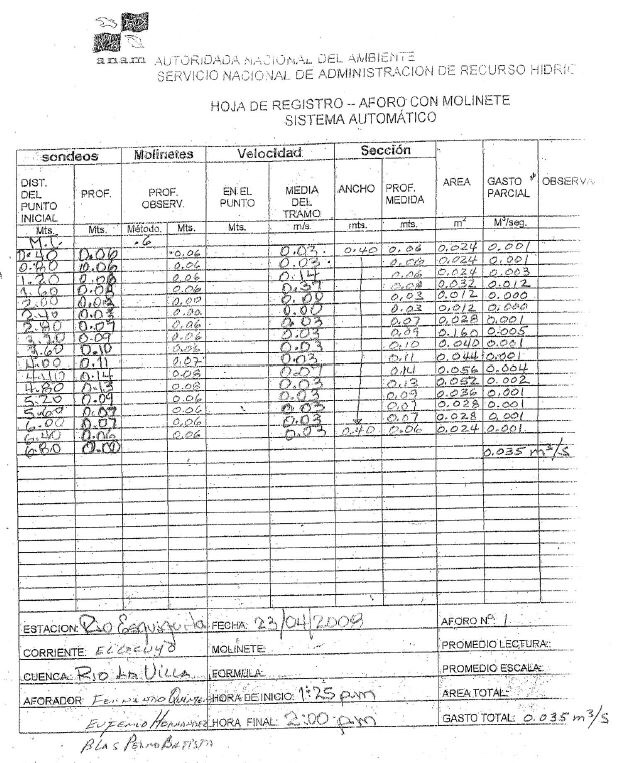 anam AUTORIDADA NACIONAL DEL AMBIENTE
SERVICIO NACIONAL DE ADMINISTRACION DE RECURSO HIDRIC
HOJA DE REGISTRO -- AFORO CON MOLINETE
SISTEMA AUTOMÁTICO
sondeos Molinetes Velocidad Sección AREA GASTO PARCIAL OBSERVA
DIST. DEL PUNTO INICIAL PROF. PROF. OBSERV. EN EL PUNTO MEDIA DEL TRAMO ANCHO PROF. MEDIDA
Mts. Mts. Método. Mts. Mts. m/s. mts. mts. m² M³/seg.
M.I. .6
0.40 0.06 0.06 0.03 0.40 0.06 0.024 0.001
0.80 0.06 0.06 0.03 0.06 0.024 0.001
1.20 0.06 0.06 0.14 0.06 0.024 0.003
1.60 0.08 0.06 0.37 0.08 0.032 0.012
2.00 0.03 0.00 0.00 0.03 0.012 0.000
2.40 0.03 0.00 0.00 0.03 0.012 0.000
2.80 0.07 0.06 0.03 0.07 0.028 0.001
3.20 0.09 0.06 0.03 0.09 0.160 0.005
3.60 0.10 0.06 0.03 0.10 0.040 0.001
4.00 0.11 0.07 0.03 0.11 0.044 0.001
0.14 0.08 0.07 0.14 0.056 0.004
4.80 0.13 0.08 0.03 0.13 0.052 0.002
5.20 0.09 0.06 0.03 0.09 0.036 0.001
5.60 0.07 0.06 0.03 0.07 0.028 0.001
6.00 0.07 0.06 0.03 0.07 0.028 0.001
6.40 0.06 0.06 0.03 0.40 0.06 0.024 0.001
6.80 0.00
0.035 m³/s
ESTACION: Rio Esquiguita FECHA: 23/04/2008 AFORO Nº: 1
CORRIENTE: MOLINETE: PROMEDIO LECTURA:
CUENCA: Rio La Villa FORMULA: PROMEDIO ESCALA:
AFORADOR: Fernando HORA DE INICIO: 1:25 pm AREA TOTAL:
Eufemio Hernandez HORA FINAL: 2:00 pm GASTO TOTAL: 0.035 m³/s
Blas Batista